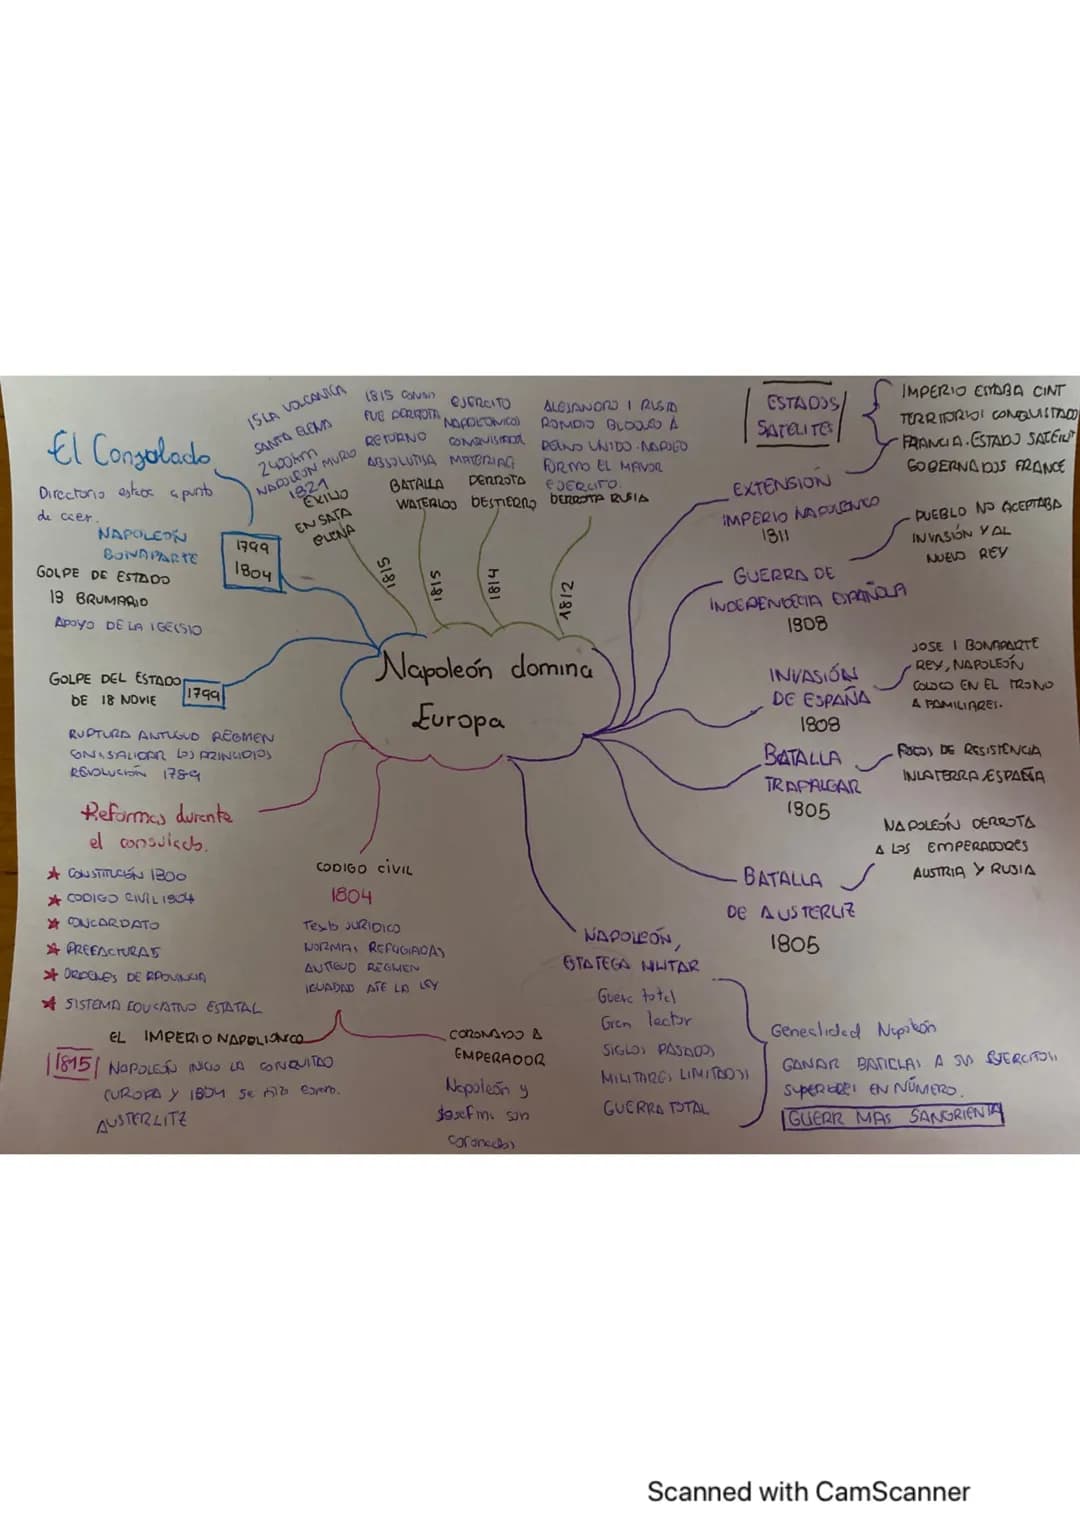 El Conzolado
Directorio estaba a punto
de caer.
NAPOLEÓN
BONAPARTE
GOLPE DE ESTADO
19 BRUMARIO
APOYO DE LA IGELSIO
1799
1804
GOLPE DEL ESTADO
DE 18 NOVIE
1799
RUPTURA ANTIGUO REGIMEN
LOS PRINCIPIOS
REVOLUCIÓN 1789
ISLA VOLCANICA
SANTA ELENA
2400km
NAPOLEÓN MURIO
1821
EXILIO
EN SATA
ELENA
1815
1815
FUE DERROTA
RETURNO
ABSOLUTISA
BATALLA
WATERLOO
1815
EJERCITO
NAPOLEONICO
CONQUISTADOR
DERROTA
DESTIERRO
1814
ALEJANDRO I RUSIA
ROMPIO BLOQUEO A
REINO UNIDO.
FORMO EL MAYOR
EJERCITO.
DERROTA RUSIA
1812
ESTADOS
SATELITES
IMPERIO ESTABA CINT
TERRITORIOS CONQUISTADO
FRANCIA. ESTADO SATELIT
GOBERNADOS FRANCE
EXTENSIÓN
IMPERIO NAPOLENICO
1811
GUERRA DE
INDEPENDECIA ESPAÑOLA
1808
PUEBLO NO ACEPTABA
INVASIÓN Y AL
NUEVO REY
INVASIÓN
DE ESPAÑA
1808
JOSE I BONAPARTE
REY, NAPOLEÓN
COLOCO EN EL TRONO
A FAMILIARES.
BATALLA
TRAFALGAR
1805
FOCOS DE RESISTENCIA
INLATERRA ESPAÑA
BATALLA
DE AUSTERLIZ
1805
NAPOLEÓN DERROTA
A LOS EMPERADORES
AUSTRIA Y RUSIA
Napoleón domina
Europa
Reformas durante
el consulado.
CONSTITUCIÓN 1800
CODIGO CIVIL 1804
CONCARDATO
PREFACTURAS
ORDENES DE
SISTEMA EDUCATIVO ESTATAL
CODIGO CIVIL
1804
Texto JURÍDICO
NORMAS
ANTIGUO REGIMEN
IGUADAD ATE LA LEY
EL IMPERIO NAPOLIONICO
1815
NAPOLEÓN INICIO LA CONQUITAD
EUROPA Y 1804 se hizo
AUSTERLITZ
CORONADO A
EMPERADOR
Napoleón y
Josefina son
coronados
NAPOLEÓN,
ESTATEGA MILITAR
Guerc total
Gran lector
SIGLOS PASADOS
MILITARES LIMITADOS
GUERRA TOTAL
Genealidad Napoleón
GANAR BATALLAS A SUS EJERCITOS
SUPERIORES EN NÚMERO.
GUERR MAS SANGRIENTA
Scanned with CamScanner